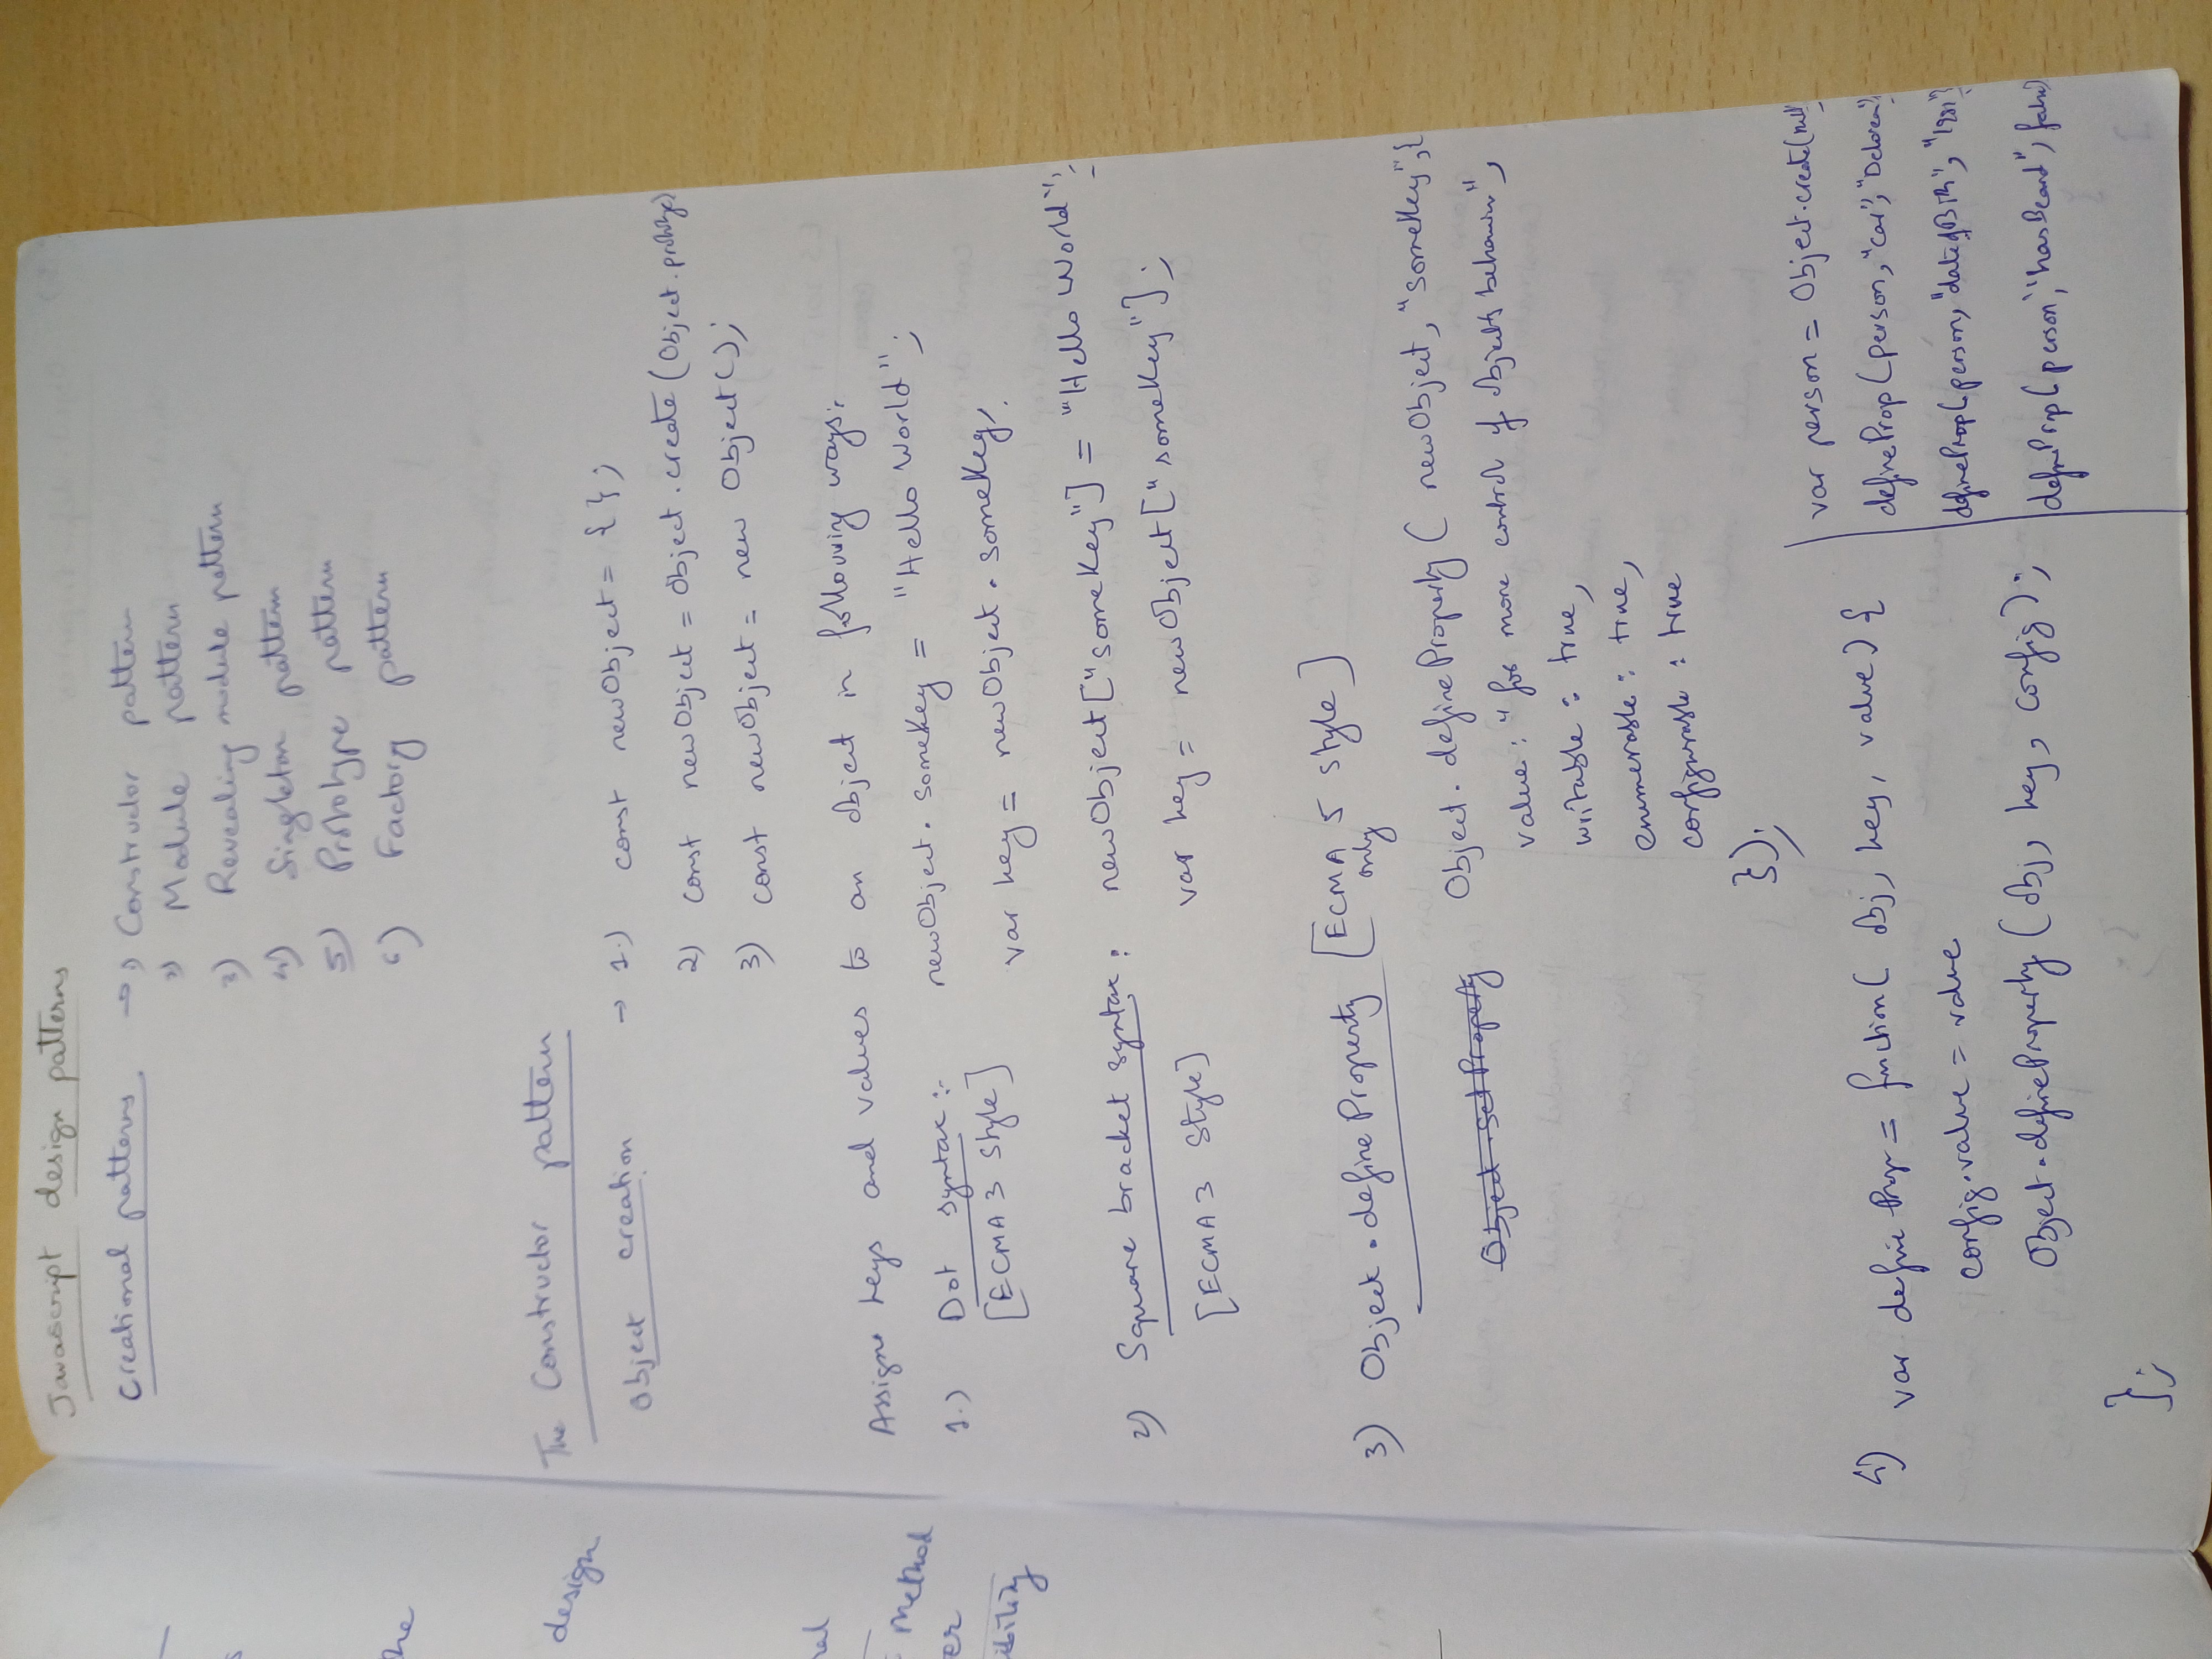 Javascript design patterns
Creational patterns → 1) Constructor pattern
2) Module pattern
3) Revealing module pattern
4) Singleton pattern
5) Prototype pattern
6) Factory pattern
The Constructor pattern
Object creation → 1.) const newObject = { };
2) const newObject = Object.create(Object.prototype)
3) const newObject = new Object();
Assign keys and values to an object in following ways:
1.) Dot syntax :- newObject.someKey = "Hello World";
[ECMA 3 style] var key = newObject.someKey;
2) Square bracket syntax: newObject["someKey"] = "Hello World";
[ECMA 3 style] var key = newObject["someKey"];
3) Object.defineProperty [ECMA 5 style]
only
Object.setProperty Object.defineProperty( newObject, "someKey", {
value: "for more control of objects behavior",
writable: true,
enumerable: true,
configurable: true
});
4) var defineProp = function( obj, key, value) {
config.value = value
Object.defineProperty(obj, key, config);
};
var person = Object.create(null
defineProp(person, "car", "Delorean"
defineProp(person, "dateofBirth", "1981"
defineProp(person, "hasBeard", false)
design
method
er
ibility